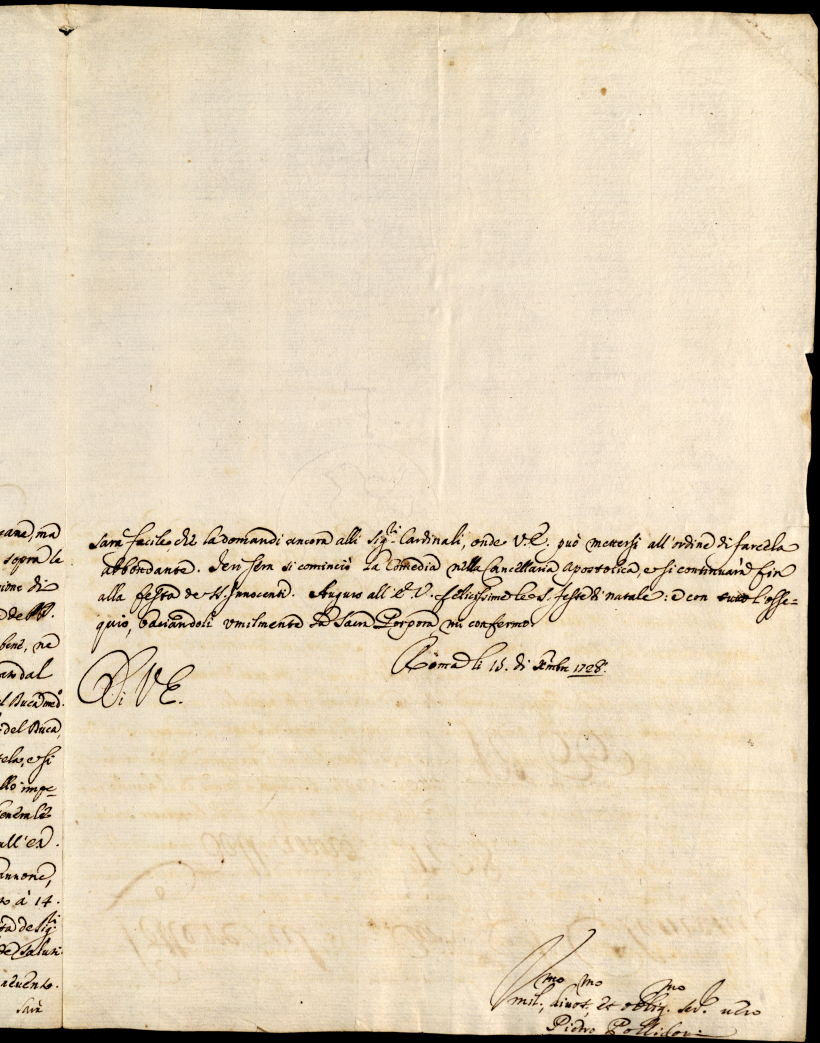 gana, ma
sopra le
zione di
bene, ne
dal
del Duca,
e si
llo impe-
all'
annone,
à 14.
de Sig.ri
de Salur
Sarà
Sarà facile che la domandi ancora alli Sig.ri Cardinali, onde V.E. può mettersi all'ordine di farcela
abbondante. Ieri sera si cominciò la Comedia nella Cancellaria Apostolica, e si continuarà fin
alla festa de SS. Innocenti. Auguro all'E.V. felicissime le S. feste di natale: e con tutto l'osse-
quio, baciandoli umilmente la Sacra Porpora mi confermo
Di V.E.
Roma li 15. di Xmbre 1728.
Umil.mo, divot.mo, et oblig.mo ser.e vero
Pietro Pollidori